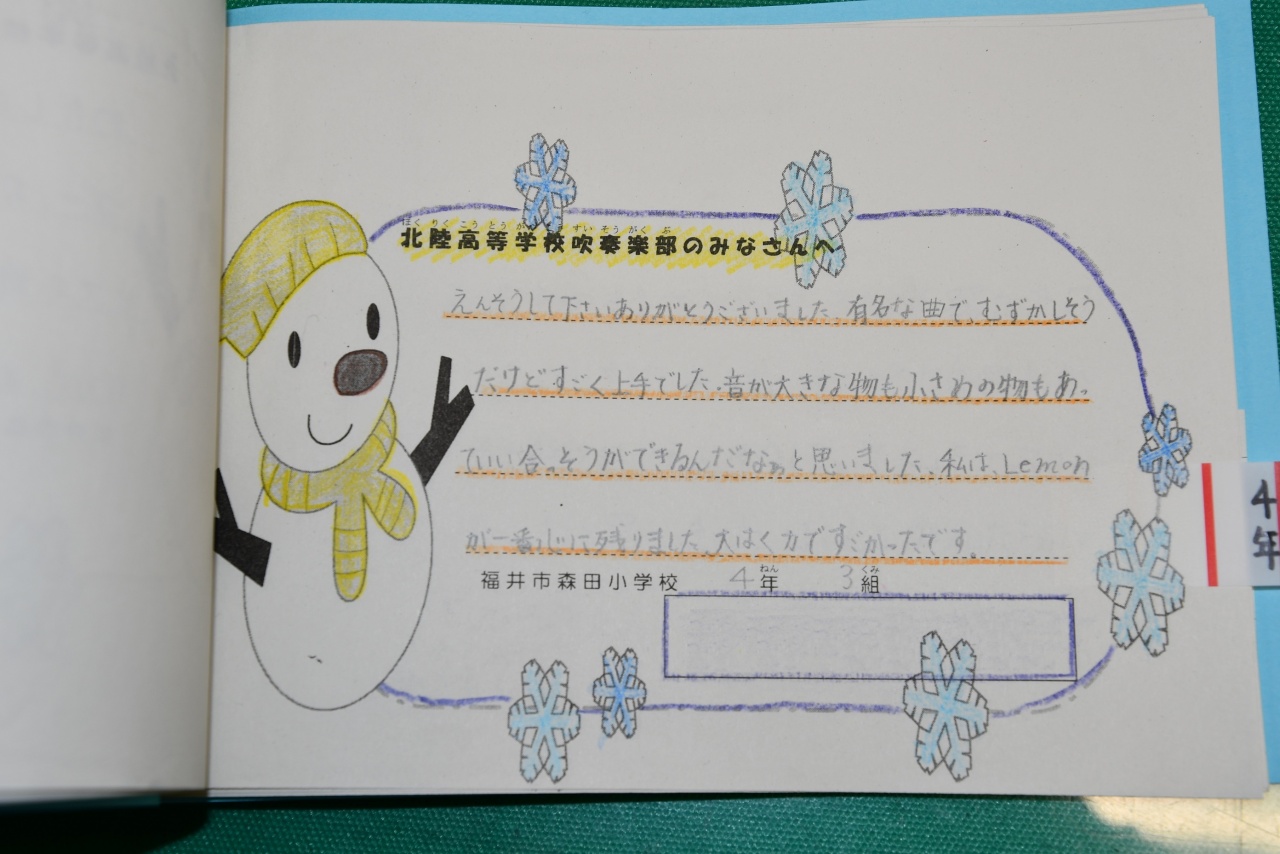 ほくりくこうとうがっこうすいそうがくぶ
北陸高等学校吹奏楽部のみなさんへ
えんそうして下さいありがとうございました。有名な曲で、むずかしそう
だけどすごく上手でした。音が大きな物も小さめの物もあっ
ていい合っそうができるんだなぁと思いました。私は、Lemon
が一番心に残りました。大はく力ですごかったです。
ねん くみ
福井市森田小学校 4年 3組
4年